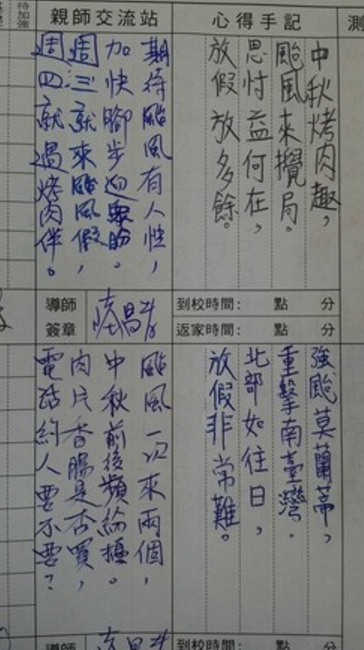 待加強
親師交流站
心得手記
測
中秋烤肉趣，
颱風來攪局。
思忖益何在，
放假放多餘。
期待颱風有人性，
加快腳步迎眾盼。
週三就來颱風假，
週四就過烤肉伴。
導師簽章
到校時間： 點 分
返家時間： 點 分
強颱莫蘭蒂，
重擊南臺灣。
北部如往日，
放假非常難。
颱風一次來兩個，
中秋前後頻輪攪。
肉片香腸是否買，
電話約人要不要？
導師
到校時間： 點 分